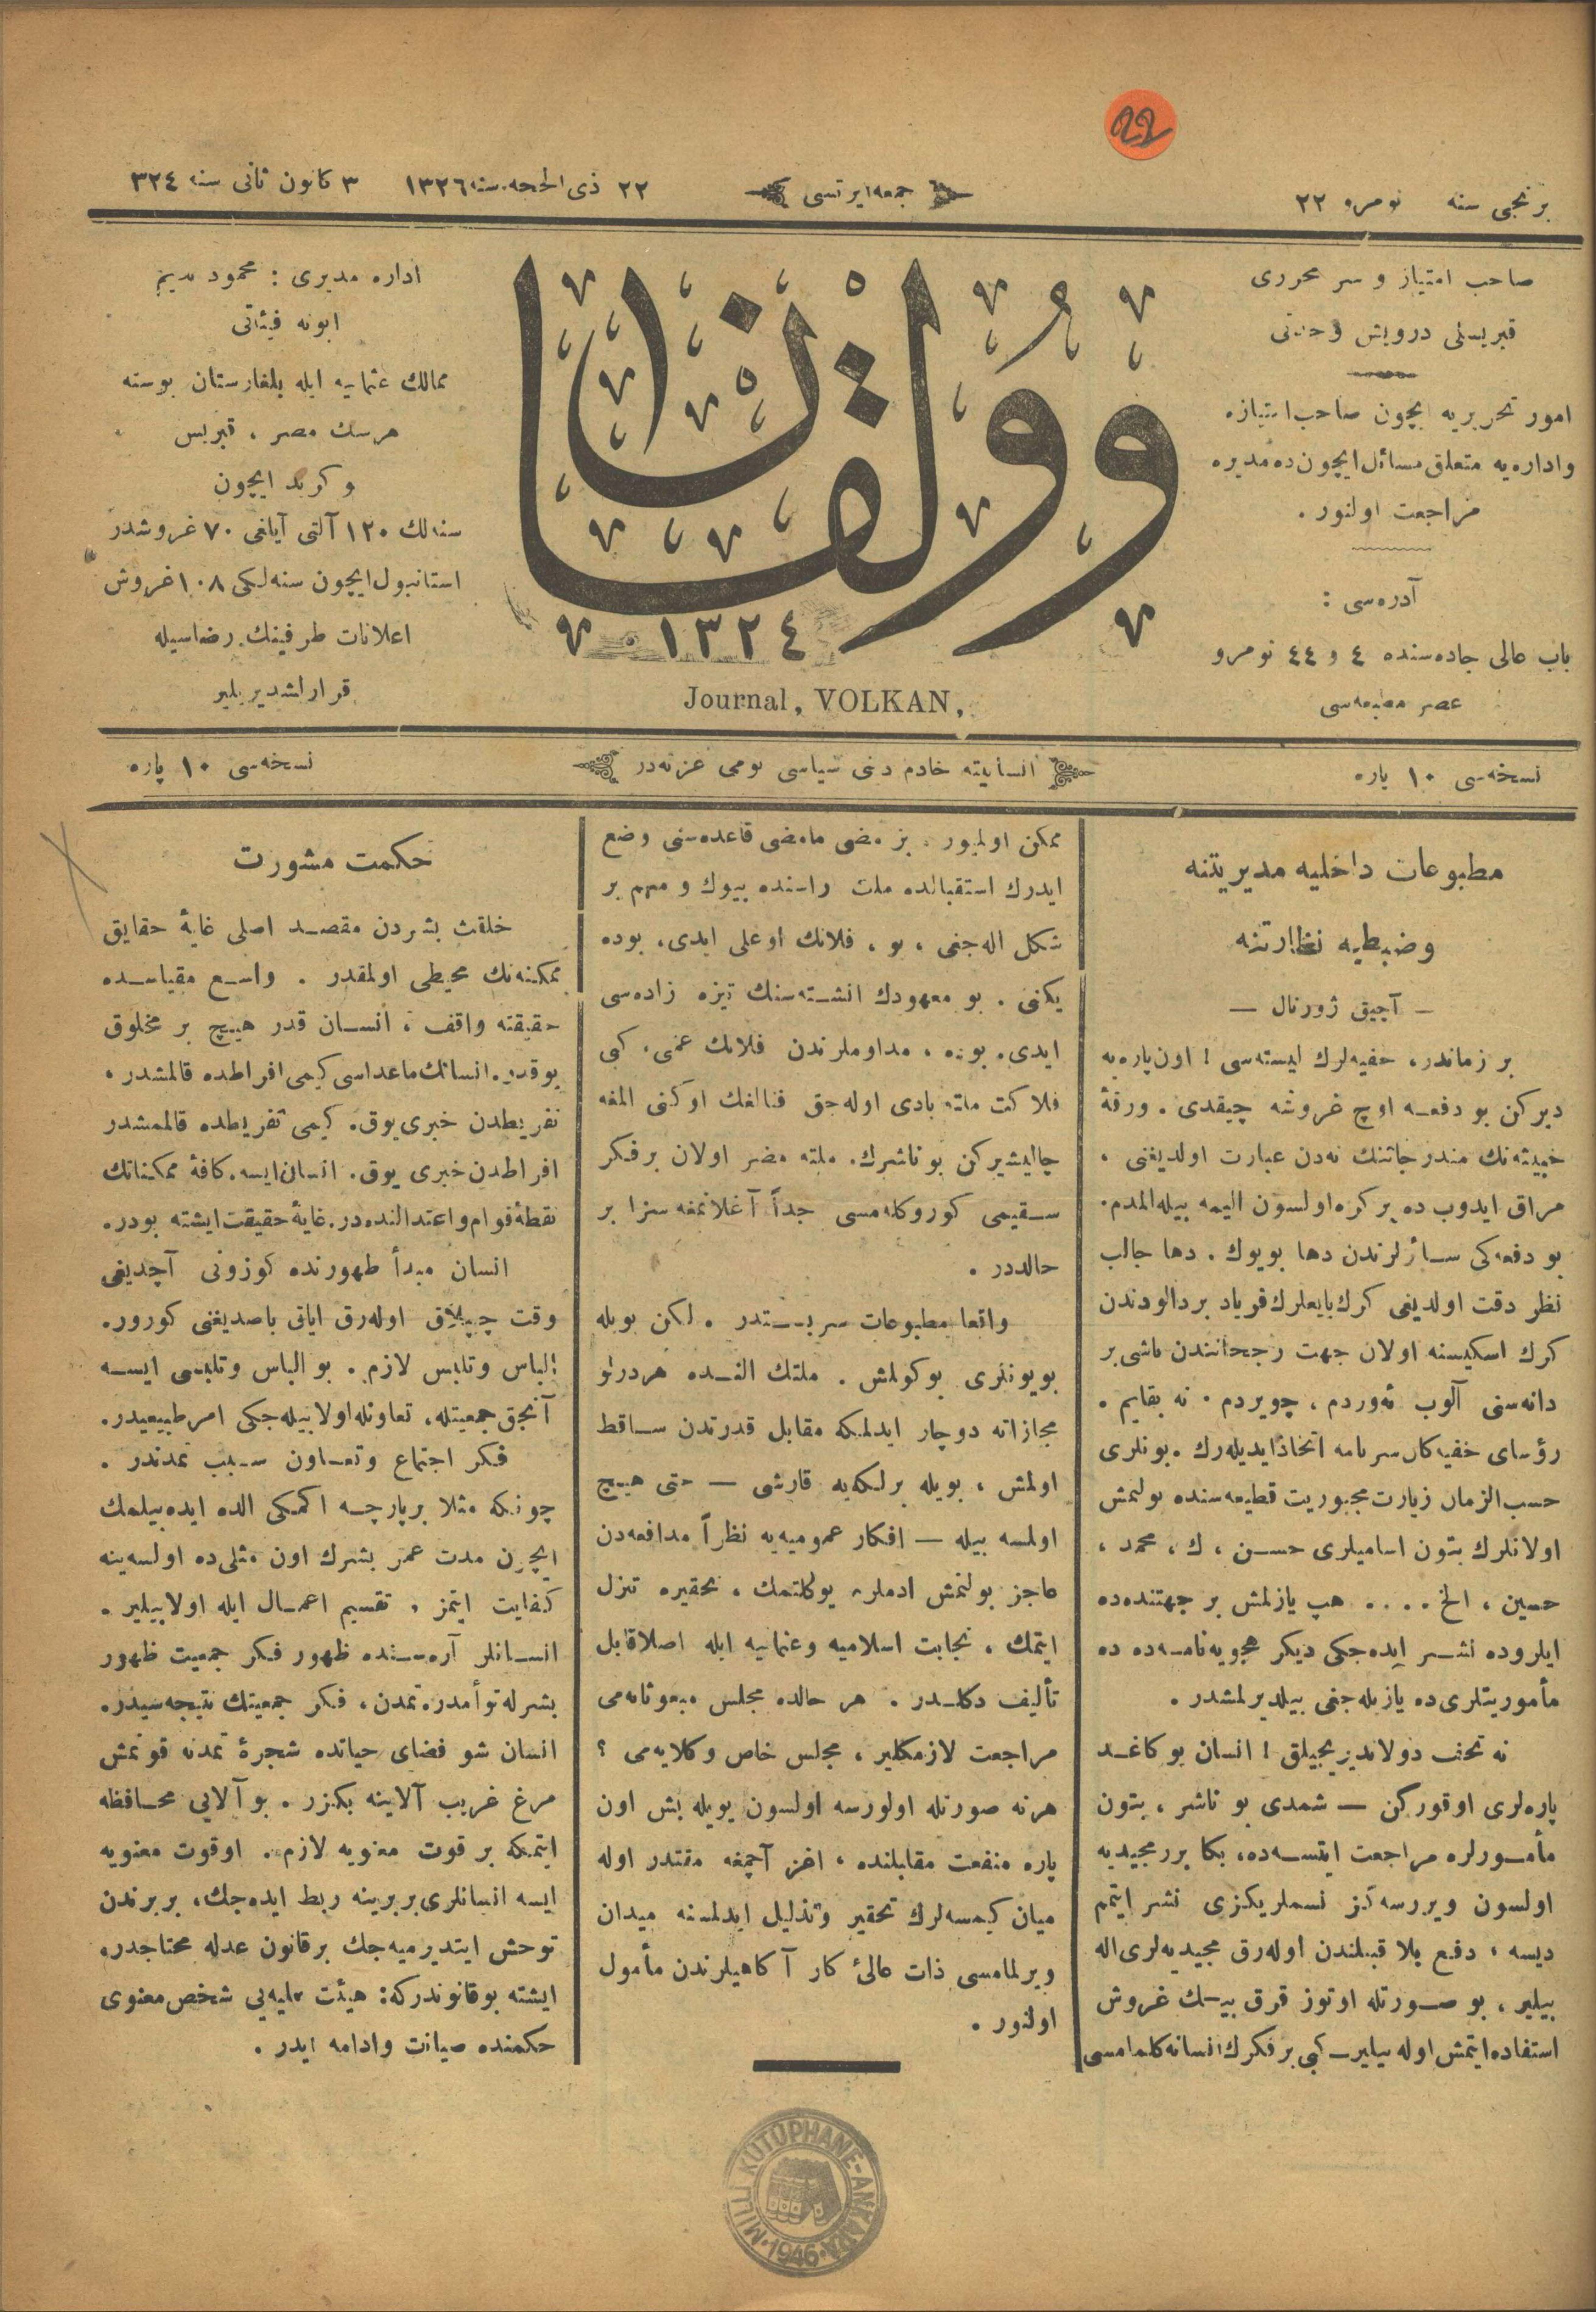 22
برنجی سنه نومرو ٢٢
جمعه ايرتسی
٢٢ ذی الحجه سنه ١٣٢٦ ٣ كانون ثانی سنه ٣٢٤
صاحب امتياز و سر محرری
قبريسلی درويش وحدتی
امور تحريريه ايچون صاحب امتيازه
واداره‌يه متعلق مسائل ايچون ده مديره
مراجعت اولنور .
آدره‌سی :
باب عالی جاده‌سنده ٤ و ٤٤ نومرو
عصر مطبعه‌سی
وولقان
١٣٢٤
Journal, VOLKAN,
اداره مديری : محمود نديم
ابونه فيئاتی
ممالك عثمانيه ايله بلغارستان بوسنه
هرسك مصر ، قبريس
و كريد ايچون
سنه‌لك ١٢٠ آلتی آيلغی ٧٠ غروشدر
استانبول ايچون سنه‌لكی ١٠٨ غروش
اعلانات طرفينك رضاسيله
قرارلشديريلير
نسخه‌سی ١٠ پاره
انسانيته خادم دينی سياسی يومی غزته‌در
نسخه‌سی ١٠ پاره
مطبوعات داخليه مديريتنه
وضبطيه نظارتنه
— آچيق ژورنال —
بر زماندر، خفيه‌لرك ليسته‌سی ! اون پاره‌يه
ديركن بو دفعه اوچ غروشه چيقدی . ورقهٔ
خبيثه‌نك مندرجاتنك نه‌دن عبارت اولديغنی ،
مراق ايدوب ده بر كره اولسون اليمه بيله آلمدم.
بو دفعه‌كی سائرلرندن دها بويوك . دها جالب
نظر دقت اولديغی كرك بايعلرك فرياد بردالودندن
كرك اسكيسنه اولان جهت رجحانندن ناشی بر
دانه‌سنی آلوب ئه‌وردم ، چويردم . نه بقايم .
رؤسای خفيه‌كان سرنامه اتخاذ ايديله‌رك . بونلری
حسب الزمان زيارت مجبوريت قطيعه‌سنده بولنمش
اولانلرك بتون اساميلری حسن ، ك ، محمد ،
حسين ، الخ .... هپ يازلمش بر جهتنده‌ده
ايلروده نشر ايده‌جكی ديكر هجويه‌نامه‌ده ده
مأموريتلری‌ده يازيله‌جغی بيلديرلمشدر .
نه تحف دولانديريجيلق ! انسان بو كاغد
پاره‌لری اوقوركن — شمدی بو ناشر ، بتون
مأمورلره مراجعت ايتسه‌ده، بكا برر مجيديه
اولسون ويررسه‌كز اسملريكزی نشر ايتمم
ديسه ، دفع بلا قبيلندن اوله‌رق مجيديه‌لری اله
بيلير ، بو صورتله اوتوز قرق بيك غروش
استفاده ايتمش اوله بيلير — كبی بر فكرك انسانه كلمامسی
ممكن اولميور . بز مضی مامضی قاعده‌سنی وضع
ايدرك استقبالده ملت راسنده بيوك و مهم بر
شكل اله‌جغی ، بو ، فلانك اوغلی ايدی، بوده
يكنی . بو معهودك انشته‌سنك تيزه زاده‌سی
ايدی. بوده ، مداوملرندن فلانك عمی، كبی
فلاكت ملته بادی اوله‌جق فنالغك اوكنی المغه
چاليشيركن بو ناشرك. ملته مضر اولان بر فكر
سقيمی كوروكله‌مسی جداً آغلانمغه سزا بر
حالددر .
واقعا مطبوعات سربستدر . لكن بويله
بويونلری بوكولمش . ملتك النده هر درلو
مجازاته دوچار ايدلمكه مقابل قدرتدن ساقط
اولمش ، بويله برلكه‌يه قارشی — حتی هيچ
اولمسه بيله — افكار عموميه‌يه نظراً مدافعه‌دن
عاجز بولنمش ادملره يوكلتمك ، تحقيره تنزل
ايتمك ، نجابت اسلاميه وعثمانيه ايله اصلا قابل
تأليف دكلدر . هر حالده مجلس مبعوثانه‌می
مراجعت لازمكلير ، مجلس خاص وكلايه‌می ؟
هرنه صورتله اولورسه اولسون بويله بش اون
پاره منفعت مقابلنده ، اغز آچمغه مقتدر اوله
ميان كيمسه‌لرك تحقير وتذليل ايدلمسنه ميدان
ويرلمامسی ذات عالیٔ كار آكاهيلرندن مأمول
اولنور .
حكمت مشورت
خلقت بشردن مقصد اصلی غايهٔ حقايق
ممكنه‌نك محيطی اولمقدر . واسع مقياسده
حقيقته واقف ، انسان قدر هيچ بر مخلوق
يوقدر. انسانك ماعداسی كيمی افراطده قالمشدر ،
تفريطدن خبری يوق. كيمی تفريطده قالمشدر
افراطدن خبری يوق. انسان ايسه. كافهٔ ممكناتك
نقطهٔ قوام واعتدالنده‌در. غايهٔ حقيقت ايشته بودر.
انسان مبدأ ظهورنده كوزونی آچديغی
وقت چيپلاق اوله‌رق اياق باصديغنی كورور.
الباس وتلبس لازم . بو الباس وتلبسی ايسه
آنجق جمعيتله، تعاونله اولابيله‌جكی امر طبيعيدر.
فكر اجتماع وتعاون سبب تمدندر .
چونكه مثلا بر پارچه اكمكی الده ايده‌بيلمك
ايچون مدت عمر بشرك اون مثلی‌ده اولسه‌ينه
كفايت ايتمز . تقسيم اعمال ايله اولابيلير .
انسانلر آره‌سنده ظهور فكر جمعيت ظهور
بشرله توأمدر. تمدن ، فكر جمعيتك نتيجه‌سيدر.
انسان شو فضای حياتده شجرهٔ تمدنه قونمش
مرغ غريب آلاينه بكزر . بو آلايی محافظه
ايتمكه بر قوت معنويه لازم. اوقوت معنويه
ايسه انسانلری بربرينه ربط ايده‌جك، بربرندن
توحش ايتديرميه‌جك برقانون عدله محتاجدر.
ايشته بوقانوندركه: هيئت مليه‌يی شخص معنوی
حكمنده صيانت وادامه ايدر .
MİLLİ KÜTÜPHANE-ANKARA
1946